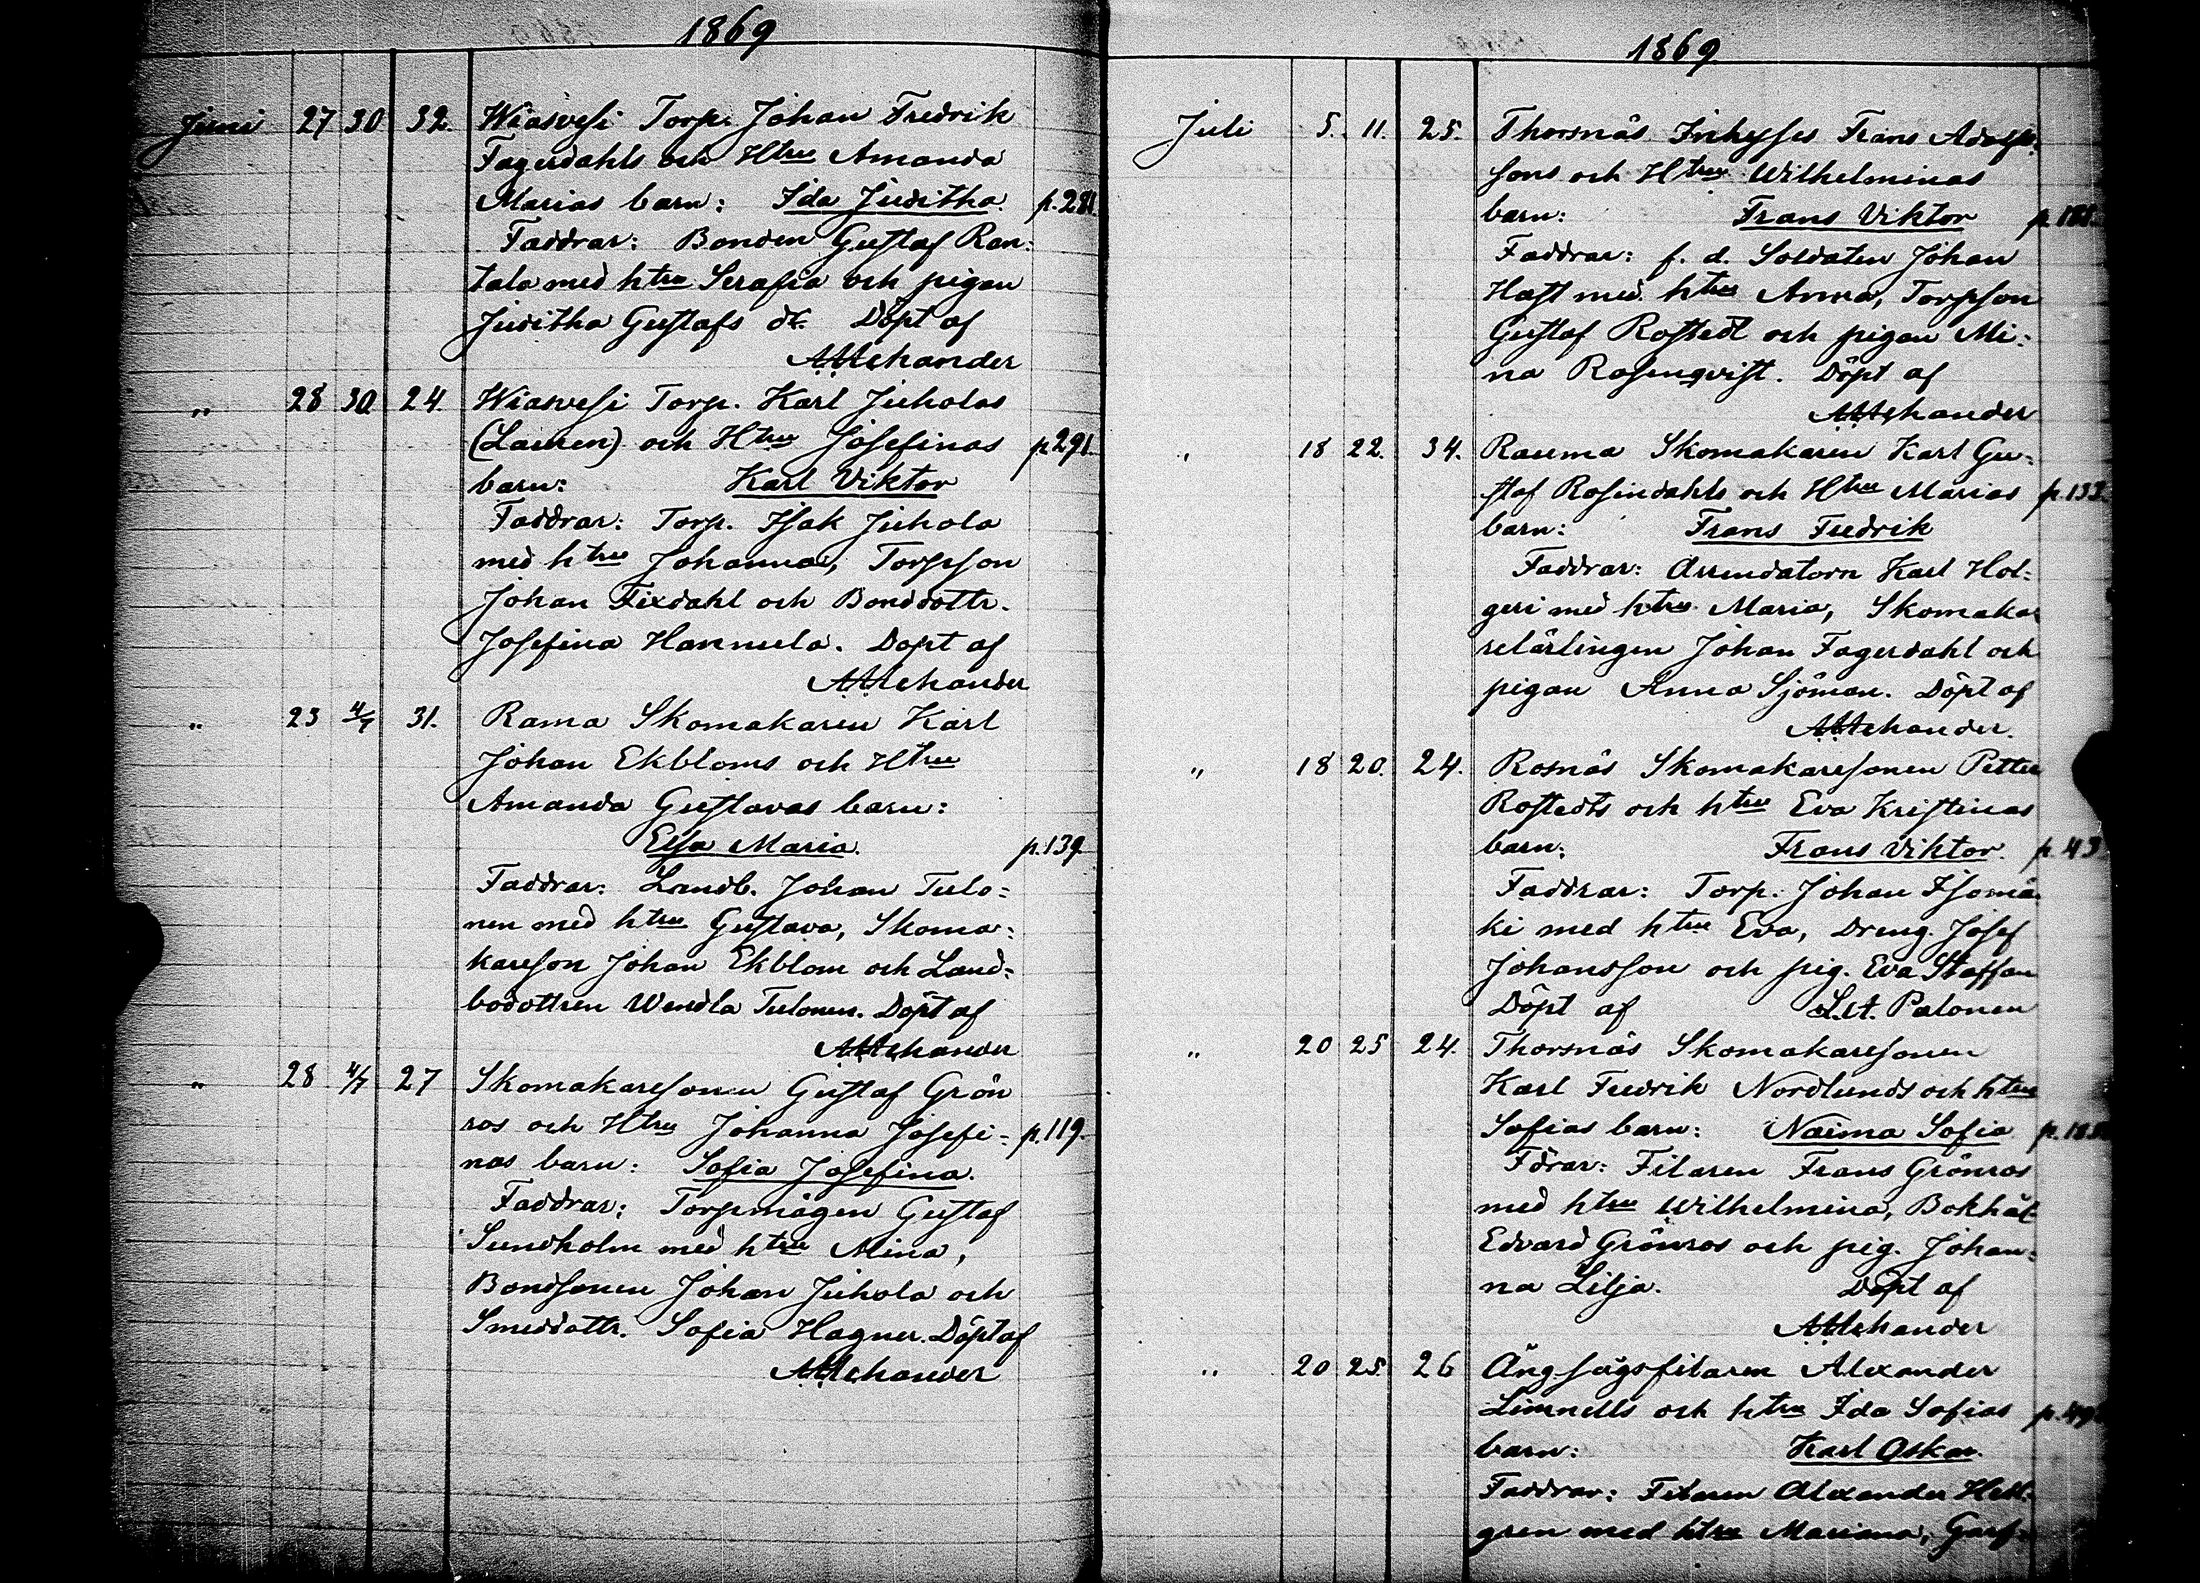 1869
Juni 27 30 32. Wiasvesi Torp. Johan Fredrik
Fagerdahls och Htru Amanda
Marias barn: Ida Juditha. p.281
Faddrar: Bonden Gustaf Ran-
tala med htru Serafia och pigan
Juditha Gustafs dr. Döpt af
Alchander
„ 28 30 24. Wiasvesi Torp. Karl Juholas
(Lauren) och Htru Josefinas p.291
barn: Karl Viktor
Faddrar: Torp. Isak Juhola
med htru Johanna, Torpson
Johan Fixdahl och Bonddottr.
Josefina Hannula. Döpt af
Alchander
„ 23 4/7 31. Rama Skomakaren Karl
Johan Ekbloms och Htru
Amanda Gustavas barn:
Elsa Maria. p.139
Faddrar: Landb. Johan Tulo-
nen med htru Gustava, Skoma-
kareson Johan Ekblom och Land-
bodottren Wendla Tulonen. Döpt af
Alchander
„ 28 4/7 27 Skomakaresonen Gustaf Grön
ros och Htru Johanna Josefi- p.119.
nas barn: Sofia Josefina.
Faddrar: Torpmågen Gustaf
Sundholm med htru Mina,
Bondsonen Johan Juhola och
Smeddottr. Sofia Hagner. Döpt af
Alchander
1869
Juli 5. 11. 25. Thorsnäs Inhyses Frans Adolfs-
sons och Htrus Wilhelminas
barn: Frans Viktor
Faddrar: f. d. Soldaten Johan
Hast med htru Anna, Torpson
Gustaf Rostedt och pigan Mi-
na Rosenqvist. Döpt af
Alchander
„ 18 22. 34. Rauma Skomakaren Karl Gu-
staf Rosendahls och Htru Marias p.133.
barn: Frans Fredrik
Faddrar: Arrendatorn Karl Hol-
geri med htru Maria, Skomaka-
relärlingen Johan Fagerdahl och
pigan Anna Sjöman. Döpt af
Alchander.
„ 18 20. 24. Rosnäs Skomakaresonen Petter
Rostedts och htru Eva Kristinas
barn: Frans Viktor. p.43.
Faddrar: Torp. Johan Isomä-
ki med htru Eva, Dreng. Josef
Johansson och pig. Eva Staffan
Döpt af L.A. Palonen
„ 20 25 24. Thorsnäs Skomakaresonen
Karl Fredrik Nordlunds och htru
Sofias barn: Naima Sofia
Fdrar: Filaren Frans Grönros
med htru Wilhelmina, Bokhål
Edvard Grönros och pig. Johan-
na Lilja. Döpt af
Alchander
„ 20 25. 26 Ångsågsfilaren Alexander
Limnells och htru Ida Sofias
barn: Karl Oskar.
Faddrar: Filaren Alexander Hell-
gren med htru Mariana,